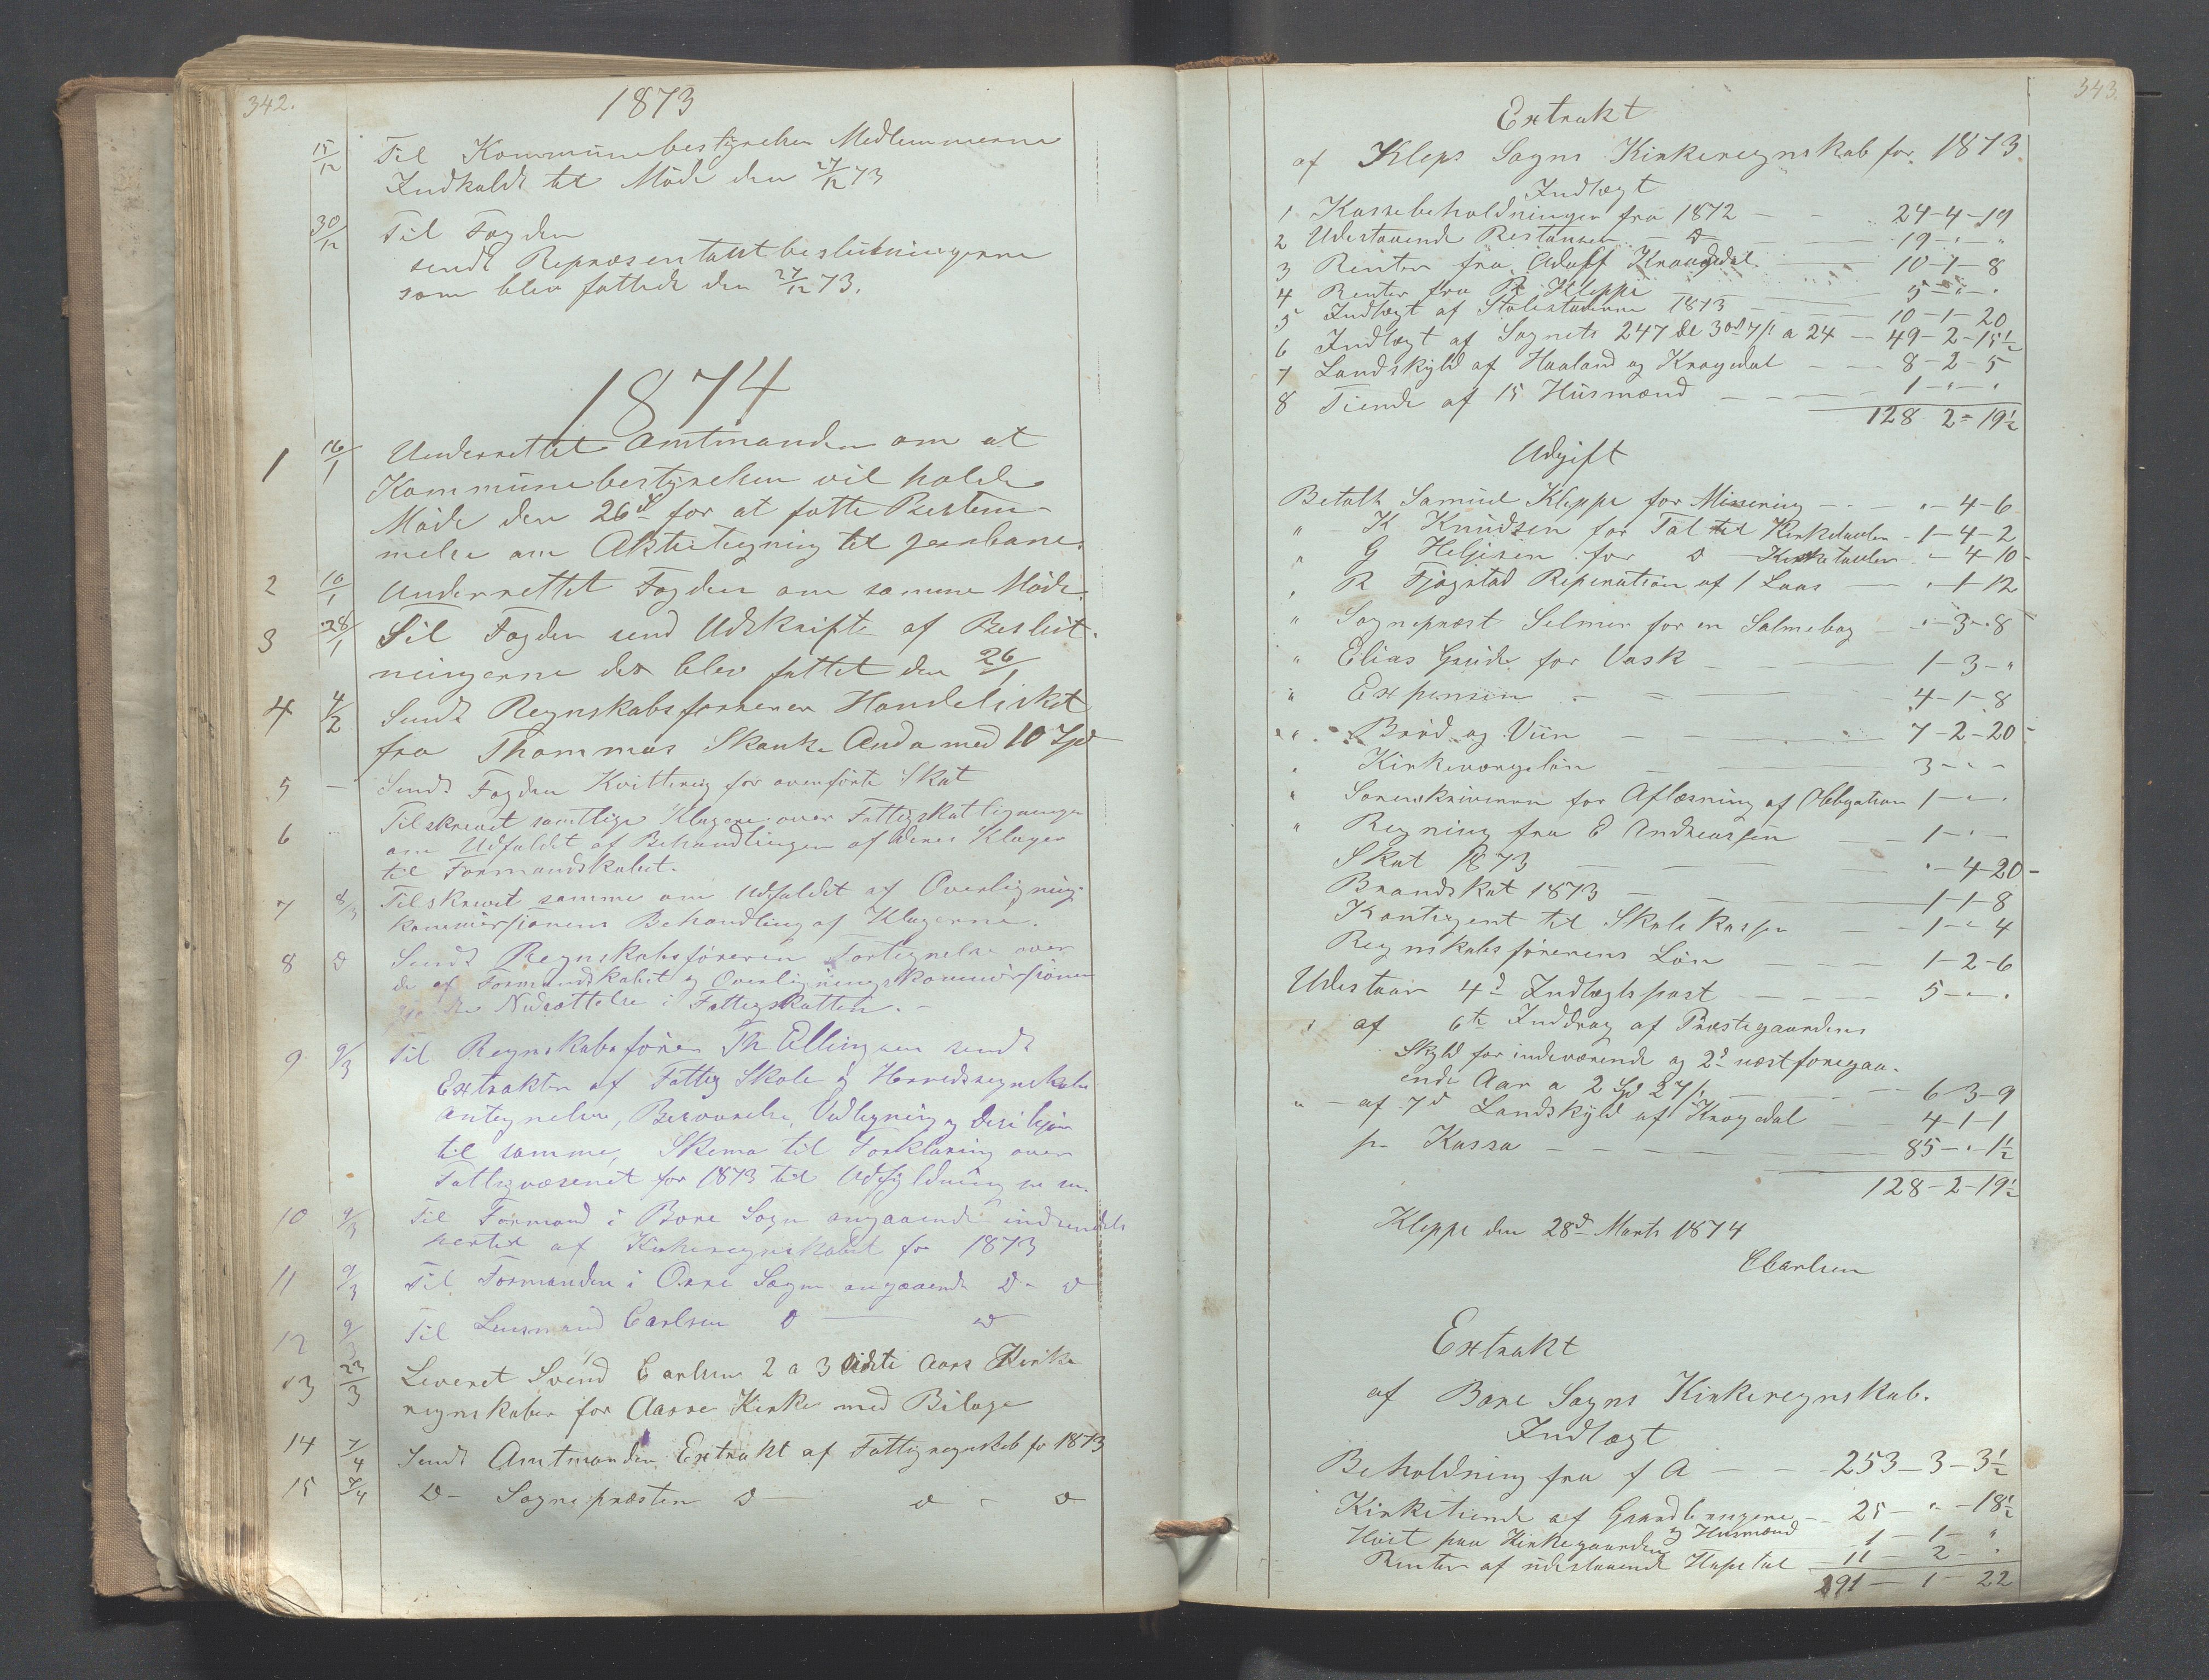 342.
1873
15/12 Til Kommunebestyrelsen Medlemmerne
Indkaldt til Möde den 27/12 73
30/12 Til Fogden
sendt Repræsentantbeslutningerne
som blev fattede den 27/12 73.
1874
1 16/1 Underrettet Amtmanden om at
Kommunebestyrelsen vil holde
Möde den 26d for at fatte Bestem-
melse om Aktietegning til Jernbane.
2 16/1 Underrettet Fogden om samme Möde.
3 28/1 Til Fogden send Udskrifte af Beslut-
ningerne der blev fattet den 26/1
4 4/2 Sendt Regnskabsföreren Handelsskat
fra Thommas Skanke Anda med 10 Spd
5 — Sendt Fogden Kvittering for ovenförte Skat
6 Tilskrevet samtlige Klagere over Fattigskatligningen
om Udfaldet af Behandlingen af deres Klager
til Formandskabet.
7 8/3 Tilskrevet samme om Udfaldet af Overlignings-
kommissionens Behandling af Klagerne.
8 d Sendt Regnskabsföreren Fortegnelse over
de af Formandskabet og Overligningskommissionen
Nedsættelse i Fattigskatten.
9 9/3 Til Regnskabsförer Th Ellingsen sendt
Extrakter af Fattig Skole og Herredsregnskabet
Antegnelser, Besvarelse, Udligning og Desisjon
til samme, Skema til Forklaring over
Fattigvæsenet for 1873 til Udfyldning m m.
10 9/3 Til Formand i Bore Sogn angaaende indsendels
af Kirkeregnskabet for 1873
11 9/3 Til Formanden i Orre Sogn angaaende D d
12 9/3 Til Lensmand Carlsen d — d
13 23/3 Leveret Svend Carlsen 2 a 3 sidste Aars Kirke
regnskaber for Aarre Kirke med Bilage
14 7/4 Sendt Amtmanden Extrakt af Fattigregnskab for 1873
15 7/4 D — Sognepræsten d — d — d
343.
Extrakt
af Kleps Sogns Kirkeregnskab for 1873
Indtægt
1 Kassebeholdningen fra 1872 — 24-4-19
2 Udestaaende Restanser — d — 19-"-"
3 Renter fra Adolf Kraagedal — 10-1-8
4 Renter fra Kleppe — 5-"-"
5 Indtægt af Stolestaderne 1873 — 10-1-20
6 Indtægt af Sognets 247 de 3 od 7 /s a 24 — 49-2-15½
7 Landskyld af Haaland og Krogedal — 8-2-5
8 Tiende af 15 Husmænd — 1-"-"
128 2-19½
Udgift
Betalt Samuel Kleppe for Messering — "-4-6
" K Knudsen for Tal til Kirketavlen - 1-4-2
" G Heljesen for d Kirketavlen "-4-10-
" R Fjogstad Reperation af 1 Laas — "-1-12
" Sognepræst Selmer for en Salmebog — "-3-8
" Elias Grude for Vask — 1-3-"
" Expensen — 4-1-8
" Bröd og Viin — 7-2-20-
" Kirkeværgelön — 3-"-"
" Sorenskriveren for Aflæsning af Obligation 1-"-"
" Regning fra E Andreassen — 1-"-"
Skat 1873 — "-4-20-
Brandskat 1873 — 1-1-8
Kontigent til Skolekassen — 1-"-4
Regnskabsförerens Lön — 1-2-6
Udestaar 4d Indtægtspost — 5-"-"
" af 6te Inddrag af Præstegaardens
Skyld for indeværende og 2d næstforegaa-
ende Aar a 2 Spd 27 /s — 6-3-9
" — af 7d Landskyld af Krogedal — 4-1-1
pr Kassa — 85-"-1½
128-2-19½
Kleppe den 28d Marts 1874
CCarlsen
Extrakt
af Bore Sogns Kirkeregnskab.
Indtægt
Beholdning fra f A — 253-3-3½
Kirketiende af Gaardbrugere — 25-"-18½
og Husmænd
Hvit paa Kirkegaarden 1-1-"
Renter af udestaaende Kapital — 11-2-"
291-1-22